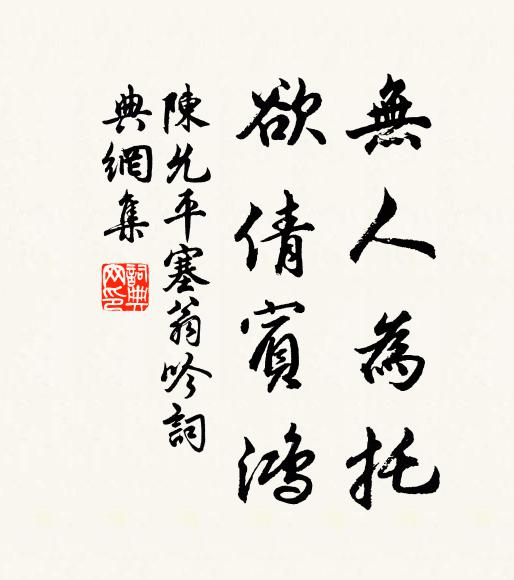 無人為托
欲倩賓鴻
陳允平塞翁吟詞
典網集
詞典
网印